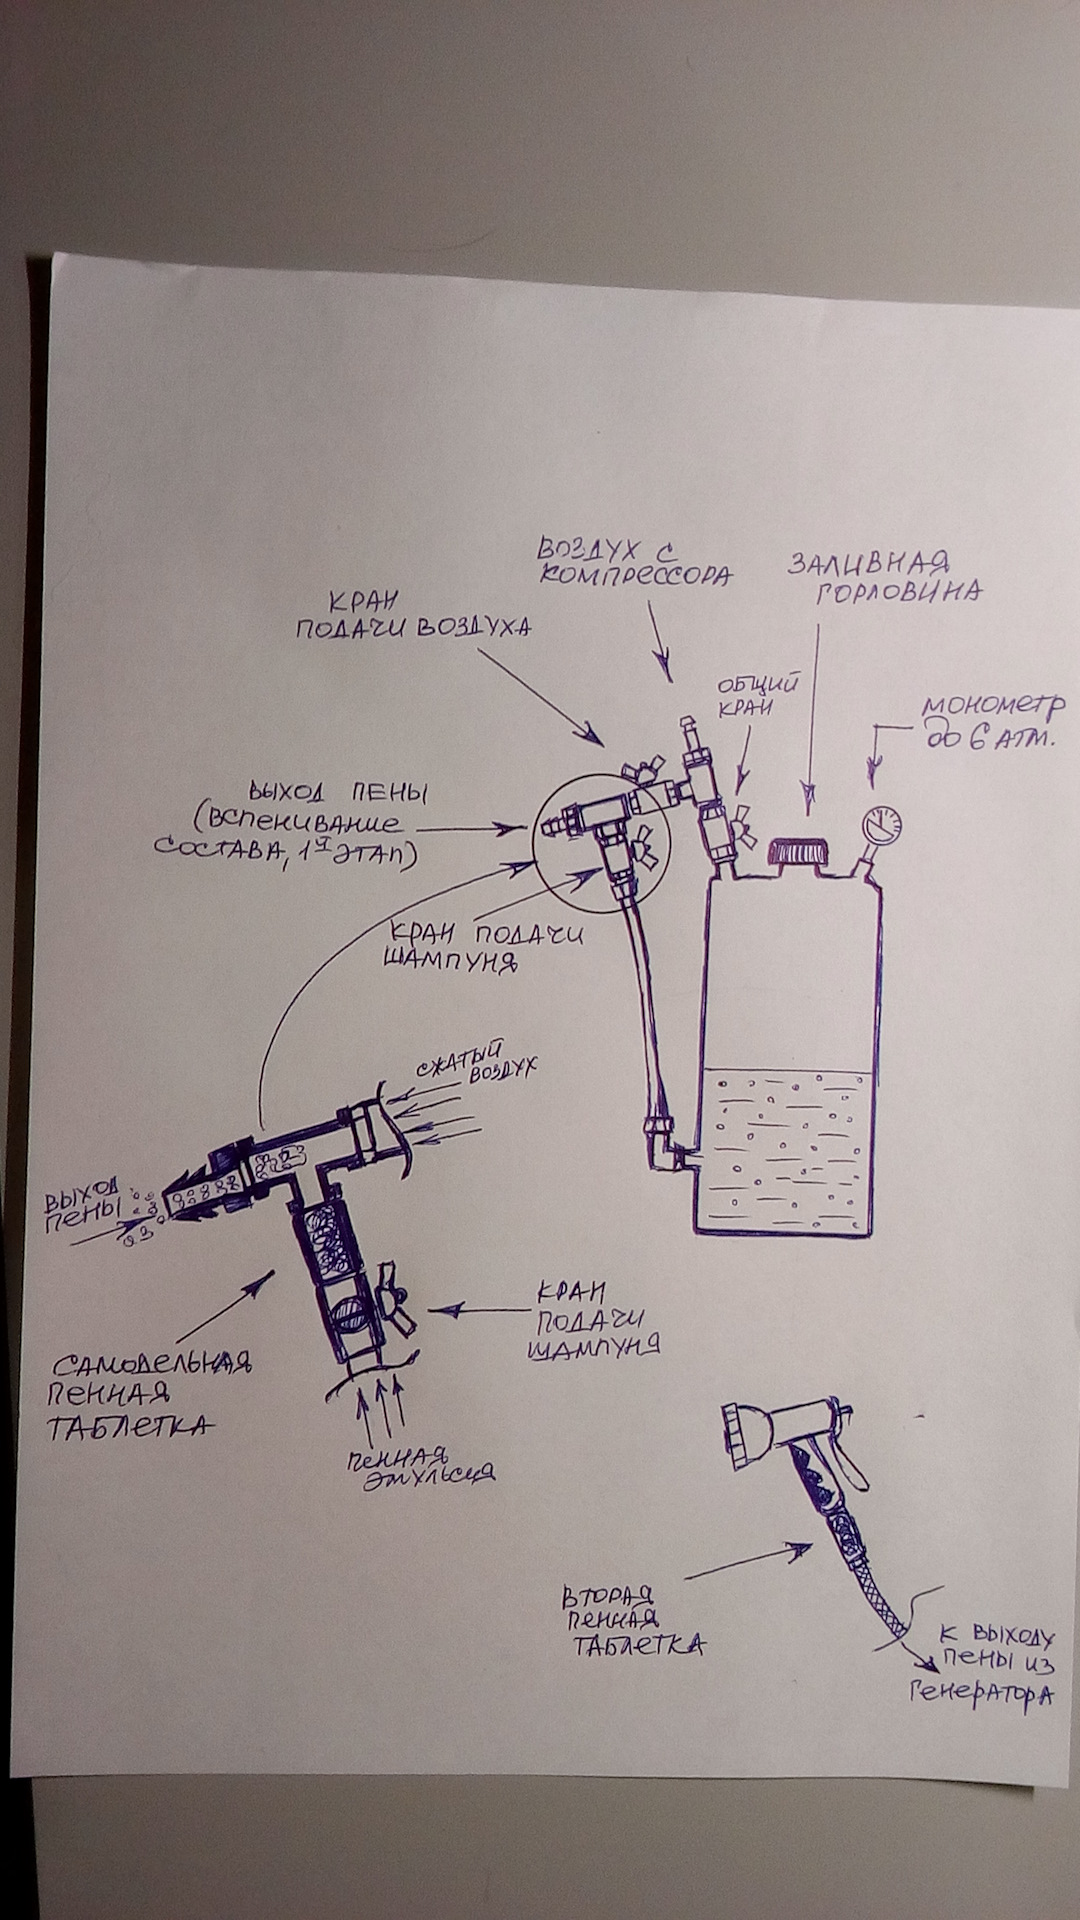 ВОЗДУХ С
КОМПРЕССОРА
ЗАЛИВНАЯ
ГОРЛОВИНА
КРАН
ПОДАЧИ ВОЗДУХА
ОБЩИЙ
КРАН
МОНОМЕТР
ДО 6 АТМ.
ВЫХОД ПЕНЫ
(ВСПЕНИВАНИЕ
СОСТАВА, 1Й ЭТАП)
КРАН ПОДАЧИ
ШАМПУНЯ
СЖАТЫЙ
ВОЗДУХ
ВЫХОД
ПЕНЫ
КРАН
ПОДАЧИ
ШАМПУНЯ
САМОДЕЛЬНАЯ
ПЕННАЯ
ТАБЛЕТКА
ПЕННАЯ
ЭМУЛЬСИЯ
ВТОРАЯ
ПЕННАЯ
ТАБЛЕТКА
К ВЫХОДУ
ПЕНЫ ИЗ
ГЕНЕРАТОРА